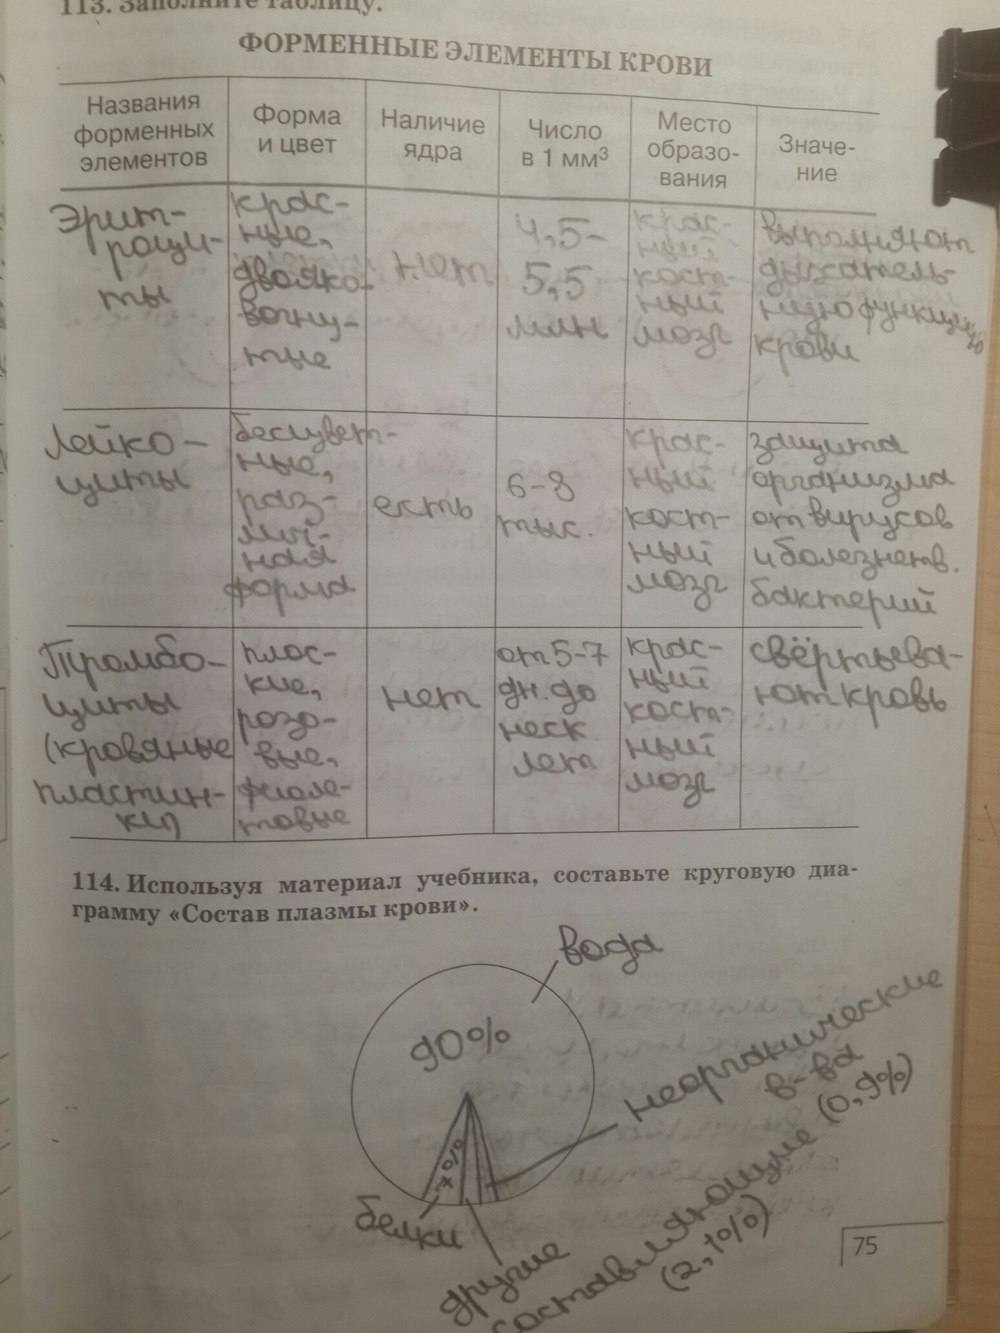 113. Заполните таблицу.
ФОРМЕННЫЕ ЭЛЕМЕНТЫ КРОВИ
Названия
форменных
элементов
Форма
и цвет
Наличие
ядра
Число
в 1 мм³
Место
образо-
вания
Значе-
ние
Эрит-
роци-
ты
крас-
ные,
двояко-
вогну-
тые
нет
4,5-
5,5
млн
крас-
ный
кост-
ный
мозг
выполняют
дыхатель-
ную функцию
крови
Лейко-
циты
бесцвет-
ные,
раз-
лич-
ная
форма
есть
6-8
тыс.
крас-
ный
кост-
ный
мозг
защита
организма
от вирусов
и болезнетв.
бактерий
Тромбо-
циты
(кровяные
пластин-
ки)
плос-
кие,
розо-
вые,
фиоле-
товые
нет
от 5-7
дн. до
неск
лет
крас-
ный
кост-
ный
мозг
свёртыва-
ют кровь
114. Используя материал учебника, составьте круговую диа-
грамму «Состав плазмы крови».
вода
90%
неорганические
в-ва
(0,9%)
7%
белки
другие
составляющие
(2,1%)
75